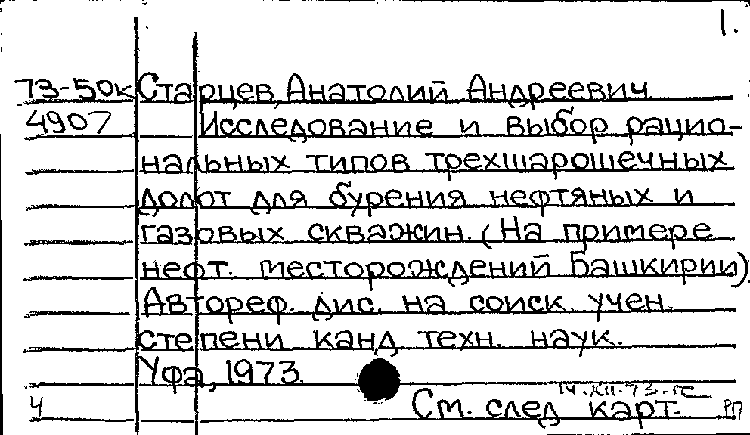 1.
73-50к Старцев, Анатолий Андреевич
4907 Исследование и выбор рацио-
нальных типов трехшарошечных
долот для бурения нефтяных и
газовых скважин. (На примере
нефт. месторождений Башкирии)
Автореф. дис. на соиск. учен.
степени канд. техн. наук.
Уфа, 1973.
14.XII.73.
Ч См. след карт. РП